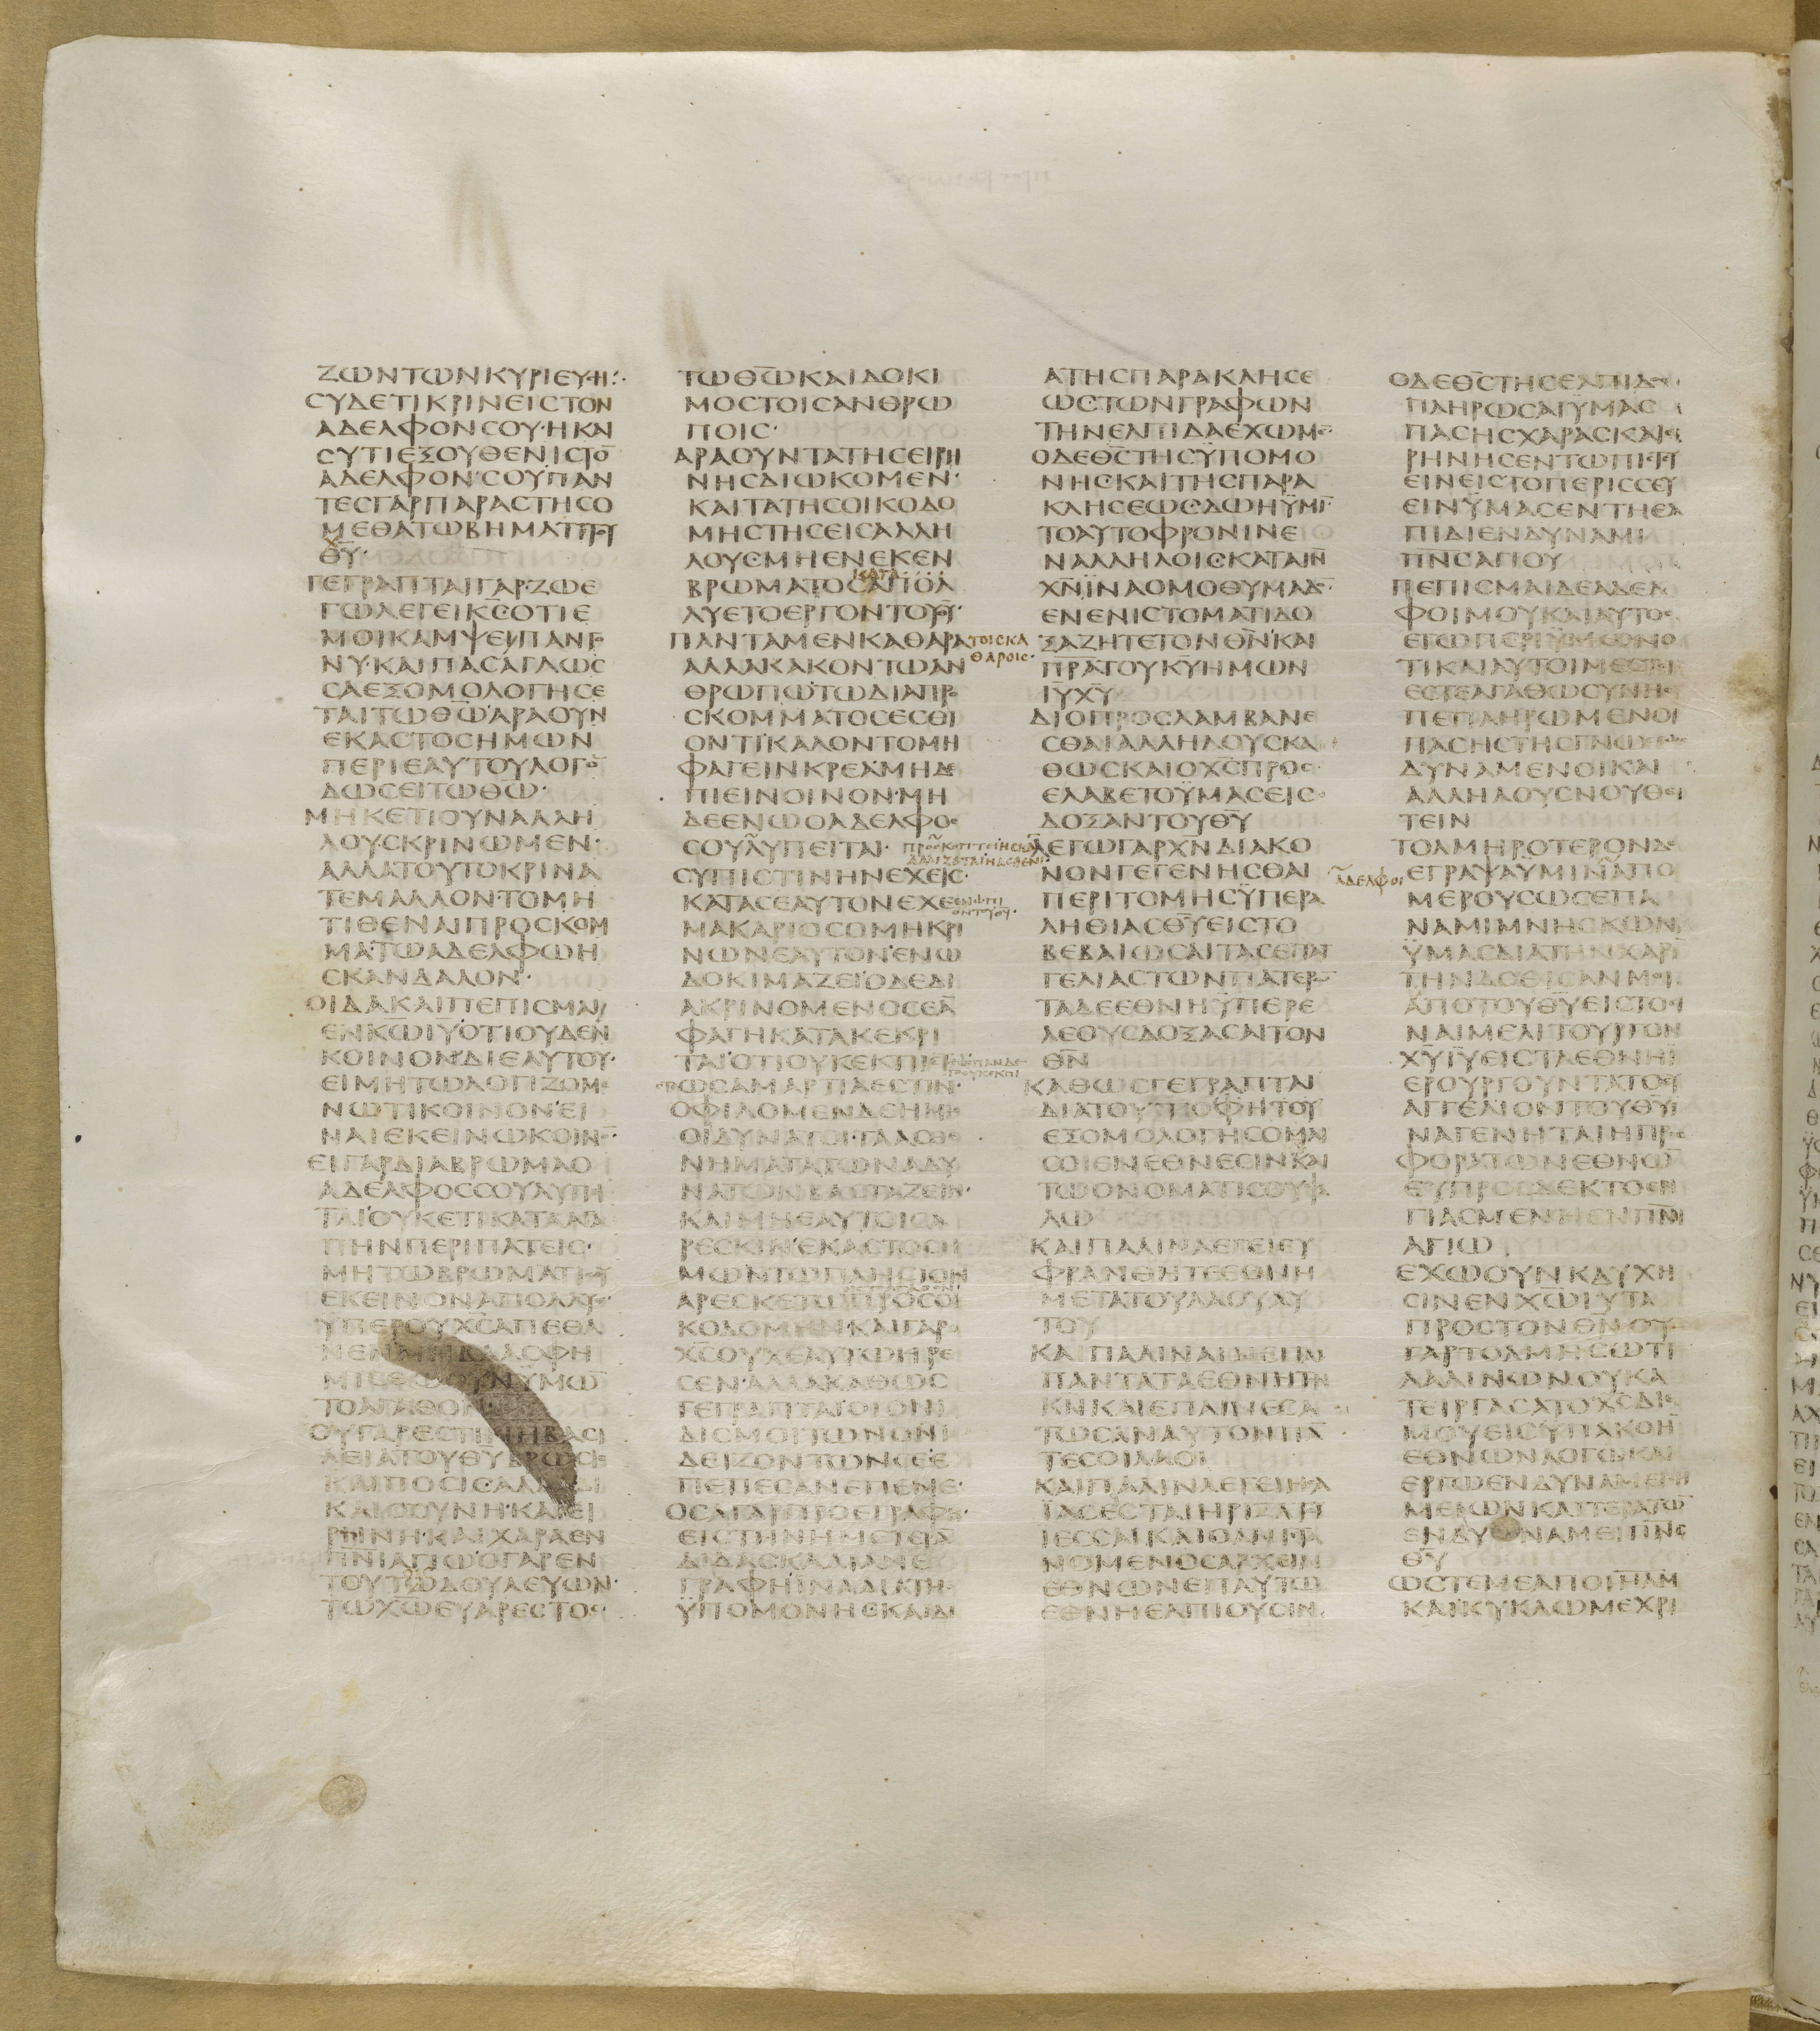 ΖΩΝΤΩΝΚΥΡΙΕΥΗ
ΣΥΔΕΤΙΚΡΙΝΕΙΣΤΟΝ
ΑΔΕΛΦΟΝΣΟΥΗΚΑΙ
ΣΥΤΙΕΞΟΥΘΕΝΙΣΤΟ̅
ΑΔΕΛΦΟΝΣΟΥΠΑΝ
ΤΕΣΓΑΡΠΑΡΑΣΤΗΣΟ
ΜΕΘΑΤΩΒΗΜΑΤΙΤΟΥ
Θ̅Υ̅
ΓΕΓΡΑΠΤΑΙΓΑΡΖΩΕ
ΓΩΛΕΓΕΙΚ̅Σ̅ΟΤΙΕ
ΜΟΙΚΑΜΨΕΙΠΑΝΓΟ
ΝΥΚΑΙΠΑΣΑΓΛΩΣ
ΣΑΕΞΟΜΟΛΟΓΗΣΕ
ΤΑΙΤΩΘ̅Ω̅ΑΡΑΟΥΝ
ΕΚΑΣΤΟΣΗΜΩΝ
ΠΕΡΙΕΑΥΤΟΥΛΟΓΟ̅
ΔΩΣΕΙΤΩΘ̅Ω̅
ΜΗΚΕΤΙΟΥΝΑΛΛΗ
ΛΟΥΣΚΡΙΝΩΜΕΝ
ΑΛΛΑΤΟΥΤΟΚΡΙΝΑ
ΤΕΜΑΛΛΟΝΤΟΜΗ
ΤΙΘΕΝΑΙΠΡΟΣΚΟΜ
ΜΑΤΩΑΔΕΛΦΩΗ
ΣΚΑΝΔΑΛΟΝ
ΟΙΔΑΚΑΙΠΕΠΙΣΜΑΙ
ΕΝΚ̅Ω̅Ι̅Υ̅ΟΤΙΟΥΔΕΝ
ΚΟΙΝΟΝΔΙΕΑΥΤΟΥ
ΕΙΜΗΤΩΛΟΓΙΖΟΜΕ
ΝΩΤΙΚΟΙΝΟΝΕΙ
ΝΑΙΕΚΕΙΝΩΚΟΙΝΟ̅
ΕΙΓΑΡΔΙΑΒΡΩΜΑΟ
ΑΔΕΛΦΟΣΣΟΥΛΥΠΗ
ΤΑΙΟΥΚΕΤΙΚΑΤΑΑΓΑ
ΠΗΝΠΕΡΙΠΑΤΕΙΣ
ΜΗΤΩΒΡΩΜΑΤΙΣΟΥ
ΕΚΕΙΝΟΝΑΠΟΛΛΥΕ
ΥΠΕΡΟΥΧ̅Σ̅ΑΠΕΘΑ
ΝΕΝΜΗΒΛΑΣΦΗ
ΜΙΣΘΩΟΥΝΫΜΩ̅
ΤΟΑΓΑΘΟΝ
ΟΥΓΑΡΕΣΤΙΝΗΒΑΣΙ
ΛΕΙΑΤΟΥΘ̅Υ̅ΒΡΩΣΙΣ
ΚΑΙΠΟΣΙΣΑΛΛΑΔΙ
ΚΑΙΟΣΥΝΗΚΑΙΕΙ
ΡΗΝΗΚΑΙΧΑΡΑΕΝ
Π̅Ν̅Ι̅ΑΓΙΩΟΓΑΡΕΝ
ΤΟΥΤΩΔΟΥΛΕΥΩΝ
ΤΩΧ̅Ω̅ΕΥΑΡΕΣΤΟΣ
ΤΩΘ̅Ω̅ΚΑΙΔΟΚΙ
ΜΟΣΤΟΙΣΑΝΘΡΩ
ΠΟΙΣ
ΑΡΑΟΥΝΤΑΤΗΣΕΙΡΗ
ΝΗΣΔΙΩΚΟΜΕΝ
ΚΑΙΤΑΤΗΣΟΙΚΟΔΟ
ΜΗΣΤΗΣΕΙΣΑΛΛΗ
ΛΟΥΣΜΗΕΝΕΚΕΝ
ΚΑΤΑ
ΒΡΩΜΑΤΟΣΑΠΟΛ
ΛΥΕΤΟΕΡΓΟΝΤΟΥΘ̅Υ̅
ΠΑΝΤΑΜΕΝΚΑΘΑΡΑ
ΤΟΙΣΚΑ
ΘΑΡΟΙΣ
ΑΛΛΑΚΑΚΟΝΤΩΑΝ
ΘΡΩΠΩΤΩΔΙΑΠΡΟ
ΣΚΟΜΜΑΤΟΣΕΣΘΙ
ΟΝΤΙΚΑΛΟΝΤΟΜΗ
ΦΑΓΕΙΝΚΡΕΑΜΗΔΕ
ΠΙΕΙΝΟΙΝΟΝΜΗ
ΔΕΕΝΩΟΑΔΕΛΦΟΣ
ΣΟΥΛΥΠΕΙΤΑΙ
ΣΥΠΙΣΤΙΝΗΝΕΧΕΙΣ
ΚΑΤΑΣΕΑΥΤΟΝΕΧΕ
ΕΝΩΠΙ
ΟΝΤΟΥΘ̅Υ̅
ΜΑΚΑΡΙΟΣΟΜΗΚΡΙ
ΝΩΝΕΑΥΤΟΝΕΝΩ
ΔΟΚΙΜΑΖΕΙΟΔΕΔΙ
ΑΚΡΙΝΟΜΕΝΟΣΕΑ̅
ΦΑΓΗΚΑΤΑΚΕΚΡΙ
ΤΑΙΟΤΙΟΥΚΕΚΠΙΣΤΕ
ΩΣΑΜΑΡΤΙΑΕΣΤΙΝ
ΟΦΙΛΟΜΕΝΔΕΗΜΙΣ
ΟΙΔΥΝΑΤΟΙΤΑΑΣΘΕ
ΝΗΜΑΤΑΤΩΝΑΔΥ
ΝΑΤΩΝΒΑΣΤΑΖΕΙΝ
ΚΑΙΜΗΕΑΥΤΟΙΣΑ
ΡΕΣΚΙΝΕΚΑΣΤΟΣΗ
ΜΩΝΤΩΠΛΗΣΙΟΝ
ΚΟΔΟΜΗΝΚΑΙΓΑΡΟ
Χ̅Σ̅ΟΥΧΕΑΥΤΩΗΡΕ
ΣΕΝΑΛΛΑΚΑΘΩΣ
ΓΕΓΡΑΠΤΑΙΟΙΟΝΙ
ΔΙΣΜΟΙΤΩΝΟΝΙ
ΔΕΙΖΟΝΤΩΝΣΕΕ
ΠΕΠΕΣΑΝΕΠΕΜΕ
ΟΣΑΓΑΡΠΡΟΕΓΡΑΦΗ
ΕΙΣΤΗΝΗΜΕΤΕΡΑ̅
ΔΙΔΑΣΚΑΛΙΑΝΕ
ΓΡΑΦΗΙΝΑΔΙΑΤΗΣ
ΫΠΟΜΟΝΗΣΚΑΙΔΙ
ΑΤΗΣΠΑΡΑΚΛΗΣΕ
ΩΣΤΩΝΓΡΑΦΩΝ
ΤΗΝΕΛΠΙΔΑΕΧΩΜΕ̅
ΟΔΕΘ̅Σ̅ΤΗΣΥΠΟΜΟ
ΝΗΣΚΑΙΤΗΣΠΑΡΑ
ΚΛΗΣΕΩΣΔΩΗΫΜΙ̅
ΤΟΑΥΤΟΦΡΟΝΙΝΕ
ΝΑΛΛΗΛΟΙΣΚΑΤΑΙ̅Ν̅
Χ̅Ν̅ΪΝΑΟΜΟΘΥΜΑΔΟ̅
ΕΝΕΝΙΣΤΟΜΑΤΙΔΟ
ΞΑΖΗΤΕΤΟΝΘ̅Ν̅ΚΑΙ
Π̅Ρ̅Α̅ΤΟΥΚ̅Υ̅ΗΜΩΝ
Ι̅Υ̅Χ̅Υ̅
ΔΙΟΠΡΟΣΛΑΜΒΑΝΕ
ΣΘΑΙΑΛΛΗΛΟΥΣΚΑ
ΘΩΣΚΑΙΟΧ̅Σ̅ΠΡΟΣ
ΕΛΑΒΕΤΟΫΜΑΣΕΙΣ
ΔΟΞΑΝΤΟΥΘ̅Υ̅
ΛΕΓΩΓΑΡΧ̅Ν̅ΔΙΑΚΟ
ΝΟΝΓΕΓΕΝΗΣΘΑΙ
ΠΕΡΙΤΟΜΗΣΫΠΕΡΑ
ΛΗΘΙΑΣΘ̅Υ̅ΕΙΣΤΟ
ΒΕΒΑΙΩΣΑΙΤΑΣΕΠΑΓ
ΓΕΛΙΑΣΤΩΝΠΑΤΕΡΩ̅
ΤΑΔΕΕΘΝΗΫΠΕΡΕ
ΛΕΟΥΣΔΟΞΑΣΑΙΤΟΝ
Θ̅Ν̅
ΚΑΘΩΣΓΕΓΡΑΠΤΑΙ
ΔΙΑΤΟΥΤΟΦΗΤΟΥ
ΕΞΟΜΟΛΟΓΗΣΟΜΑΙ
ΣΟΙΕΝΕΘΝΕΣΙΝΚΑΙ
ΤΩΟΝΟΜΑΤΙΣΟΥΨΑ
ΛΩ
ΚΑΙΠΑΛΙΝΛΕΓΕΙΕΥ
ΦΡΑΝΘΗΤΕΕΘΝΗ
ΜΕΤΑΤΟΥΛΑΟΥΑΥ
ΤΟΥ
ΚΑΙΠΑΛΙΝΑΙΝΕΙΤΑΙ
ΠΑΝΤΑΤΑΕΘΝΗΤΟΝ
Κ̅Ν̅ΚΑΙΕΠΑΙΝΕΣΑ
ΤΩΣΑΝΑΥΤΟΝΠΑ̅
ΤΕΣΟΙΛΑΟΙ
ΚΑΙΠΑΛΙΝΛΕΓΕΙΗΣΑ
ΪΑΣΕΣΤΑΙΗΡΙΖΑΤΗ
ΙΕΣΣΑΙΚΑΙΟΑΝΙΣΤΑ
ΝΟΜΕΝΟΣΑΡΧΕΙΝ
ΕΘΝΩΝΕΠΑΥΤΩ
ΕΘΝΗΕΛΠΙΟΥΣΙΝ
ΟΔΕΘ̅Σ̅ΤΗΣΕΛΠΙΔΟΣ
ΠΛΗΡΩΣΑΙΫΜΑΣ
ΠΑΣΗΣΧΑΡΑΣΚΑΙΕΙ
ΡΗΝΗΣΕΝΤΩΠΙΣΤΕΥ
ΕΙΝΕΙΣΤΟΠΕΡΙΣΣΕΥ
ΕΙΝΫΜΑΣΕΝΤΗΕΛ
ΠΙΔΙΕΝΔΥΝΑΜΙ
Π̅Ν̅Σ̅ΑΓΙΟΥ
ΠΕΠΙΣΜΑΙΔΕΑΔΕΛ
ΦΟΙΜΟΥΚΑΙΑΥΤΟΣ
ΕΓΩΠΕΡΙΫΜΩΝΟ
ΤΙΚΑΙΑΥΤΟΙΜΕΣΤΟΙ
ΕΣΤΕΑΓΑΘΩΣΥΝΗΣ
ΠΕΠΛΗΡΩΜΕΝΟΙ
ΠΑΣΗΣΤΗΣΓΝΩΣΕΩΣ
ΔΥΝΑΜΕΝΟΙΚΑΙ
ΑΛΛΗΛΟΥΣΝΟΥΘΕ
ΤΕΙΝ
ΤΟΛΜΗΡΟΤΕΡΟΝΔΕ
ΑΔΕΛΦΟΙ
ΕΓΡΑΨΑΫΜΙΝΑΠΟ
ΜΕΡΟΥΣΩΣΕΠΑ
ΝΑΜΙΜΝΗΣΚΩΝ
ΫΜΑΣΔΙΑΤΗΝΧΑΡΙ̅
ΤΗΝΔΟΘΙΣΑΝΜΟΙ
ΑΠΟΤΟΥΘ̅Υ̅ΕΙΣΤΟΕΙ
ΝΑΙΜΕΛΙΤΟΥΡΓΟΝ
Χ̅Υ̅Ι̅Υ̅ΕΙΣΤΑΕΘΝΗΪ
ΕΡΟΥΡΓΟΥΝΤΑΤΟΕΥ
ΑΓΓΕΛΙΟΝΤΟΥΘ̅Υ̅Ι
ΝΑΓΕΝΗΤΑΙΗΠΡΟΣ
ΦΟΡΑΤΩΝΕΘΝΩ̅
ΕΥΠΡΟΣΔΕΚΤΟΣΗ
ΓΙΑΣΜΕΝΗΕΝΠ̅Ν̅Ι̅
ΑΓΙΩ
ΕΧΩΟΥΝΚΑΥΧΗ
ΣΙΝΕΝΧ̅Ω̅Ι̅Υ̅ΤΑ
ΠΡΟΣΤΟΝΘ̅Ν̅ΟΥ
ΓΑΡΤΟΛΜΗΣΩΤΙ
ΛΑΛΙΝΩΝΟΥΚΑ
ΤΕΙΡΓΑΣΑΤΟΧ̅Σ̅ΔΙΕ
ΜΟΥΕΙΣΫΠΑΚΟΗ̅
ΕΘΝΩΝΛΟΓΩΚΑΙ
ΕΡΓΩΕΝΔΥΝΑΜΕΙΣΗ
ΜΕΙΩΝΚΑΙΤΕΡΑΤΩ̅
ΕΝΔΥΝΑΜΕΙΠ̅Ν̅Σ̅
Θ̅Υ̅
ΩΣΤΕΜΕΑΠΟΙΛΗΜ
ΚΑΙΚΥΚΛΩΜΕΧΡΙ